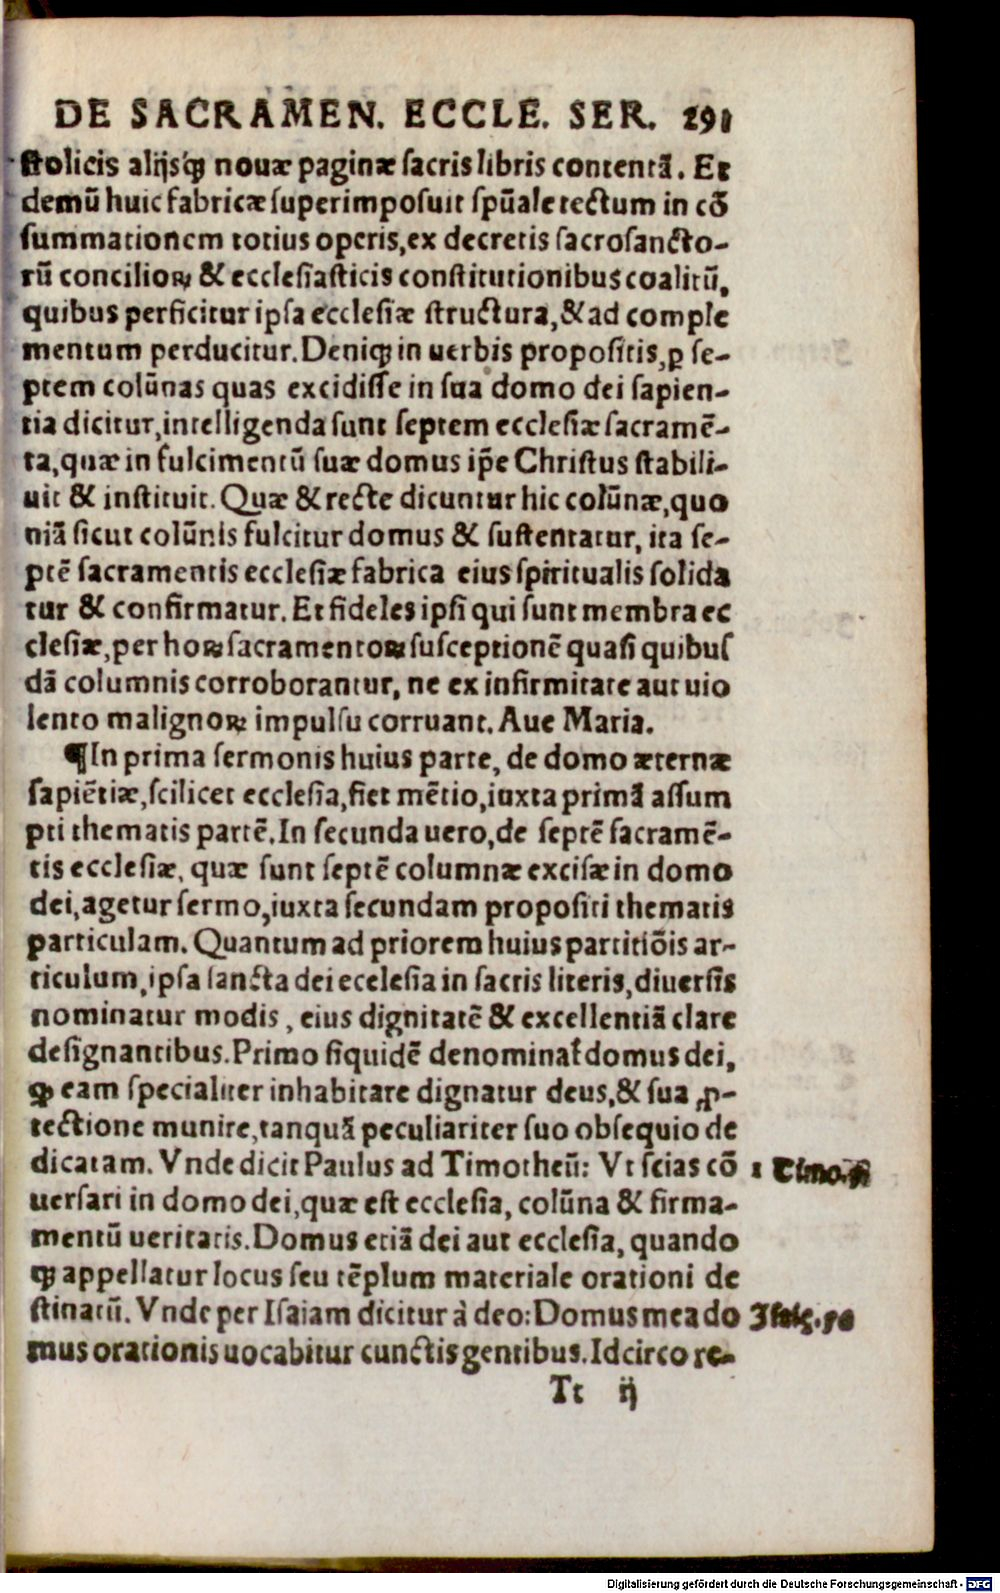 DE SACRAMEN. ECCLE. SER. 291
ſtolicis alijsqꝫ nouæ paginæ ſacris libris contentā. Et
demū huic fabricæ ſuperimpoſuit ſpūale tectum in cō
ſummationem totius operis, ex decretis ſacroſancto-
rū concilioꝝ & eccleſiaſticis conſtitutionibus coalitū,
quibus perficitur ipſa eccleſiæ ſtructura, & ad comple
mentum perducitur. Deniqꝫ in uerbis propoſitis, ꝑ ſe-
ptem colūnas quas excidiſſe in ſua domo dei ſapien-
tia dicitur, intelligenda ſunt ſeptem eccleſiæ ſacramē-
ta, quæ in fulcimentū ſuæ domus ip̄e Chriſtus ſtabili-
uit & inſtituit. Quæ & recte dicuntur hic colūnæ, quo
niā ſicut colūnis fulcitur domus & ſuſtentatur, ita ſe-
ptē ſacramentis eccleſiæ fabrica eius ſpiritualis ſolida
tur & confirmatur. Et fideles ipſi qui ſunt membra ec
cleſiæ, per hoꝝ ſacramentoꝝ ſuſceptionē quaſi quibuſ
dā columnis corroborantur, ne ex infirmitate aut uio
lento malignoꝝ impulſu corruant. Aue Maria.
¶In prima ſermonis huius parte, de domo æternæ
ſapiētiæ, ſcilicet eccleſia, fiet mētio, iuxta primā aſſum
pti thematis partē. In ſecunda uero, de ſeptē ſacramē-
tis eccleſiæ, quæ ſunt ſeptē columnæ exciſæ in domo
dei, agetur ſermo, iuxta ſecundam propoſiti thematis
particulam. Quantum ad priorem huius partitiōis ar-
ticulum, ipſa ſancta dei eccleſia in ſacris literis, diuerſis
nominatur modis, eius dignitatē & excellentiā clare
deſignantibus. Primo ſiquidē denominat᷑ domus dei,
ꝙ eam ſpecialiter inhabitare dignatur deus, & ſua ꝓ-
tectione munire, tanquā peculiariter ſuo obſequio de
dicatam. Vnde dicit Paulus ad Timotheū: Vt ſcias cō 1 Timo. 3
uerſari in domo dei, quæ eſt eccleſia, colūna & firma-
mentū ueritatis. Domus etiā dei aut eccleſia, quando
qꝫ appellatur locus ſeu tēplum materiale orationi de
ſtinatū. Vnde per Iſaiam dicitur à deo: Domus mea do Iſaię. 56
mus orationis uocabitur cunctis gentibus. Idcirco re-
Tt ij
Digitalisierung gefördert durch die Deutsche Forschungsgemeinschaft - DFG